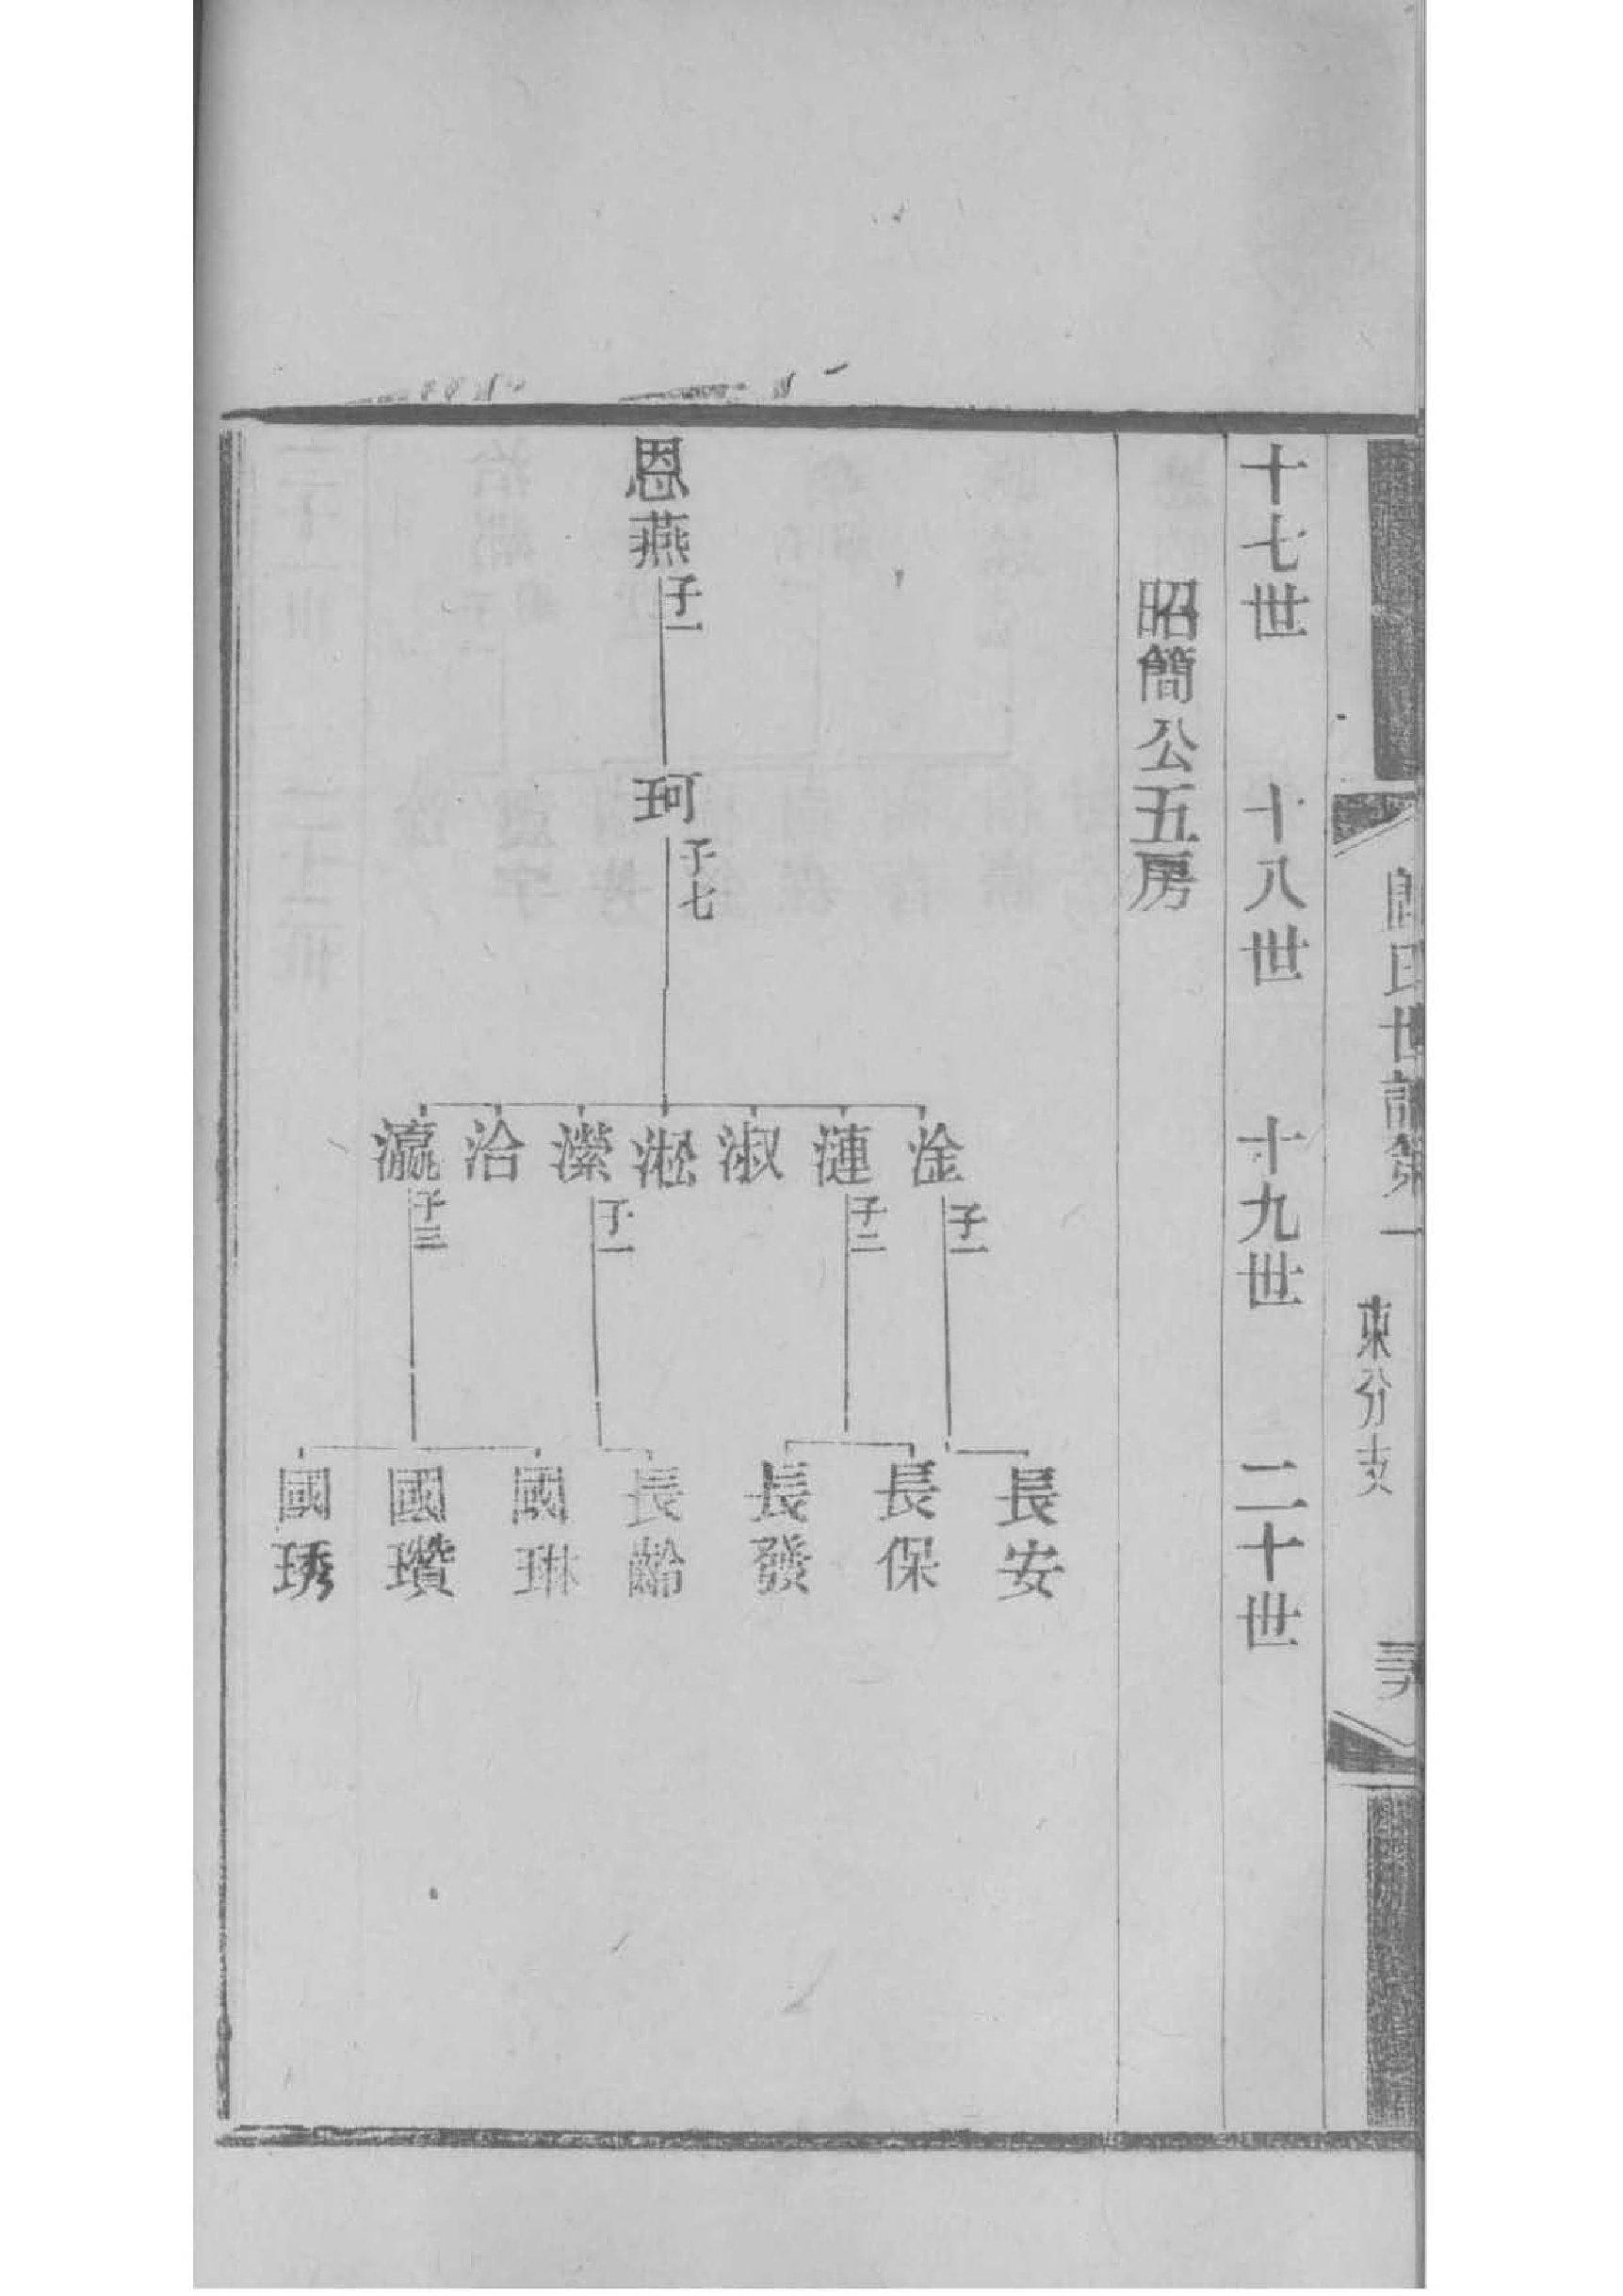 氏世譜第一
東分支
十七世 十八世 十九世 二十世
昭簡公五房
恩燕 子一
珂 子七
淦 子一
漣 子二
淑
淞
濴 子一
洽
瀛 子三
長安
長保
長發
長齡
國琳
國瓚
國琇